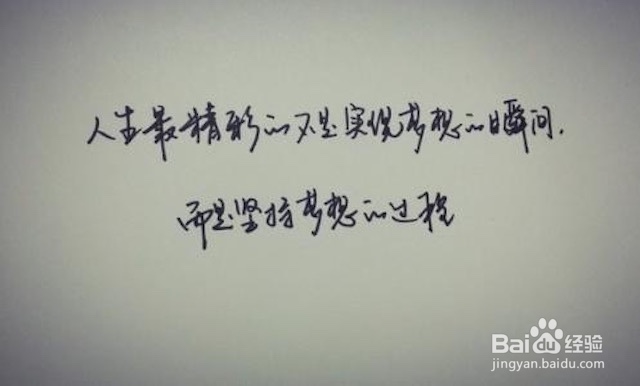 人生最精彩的不是实现梦想的瞬间，
而是坚持梦想的过程
Baidu经验
jingyan.baidu.com